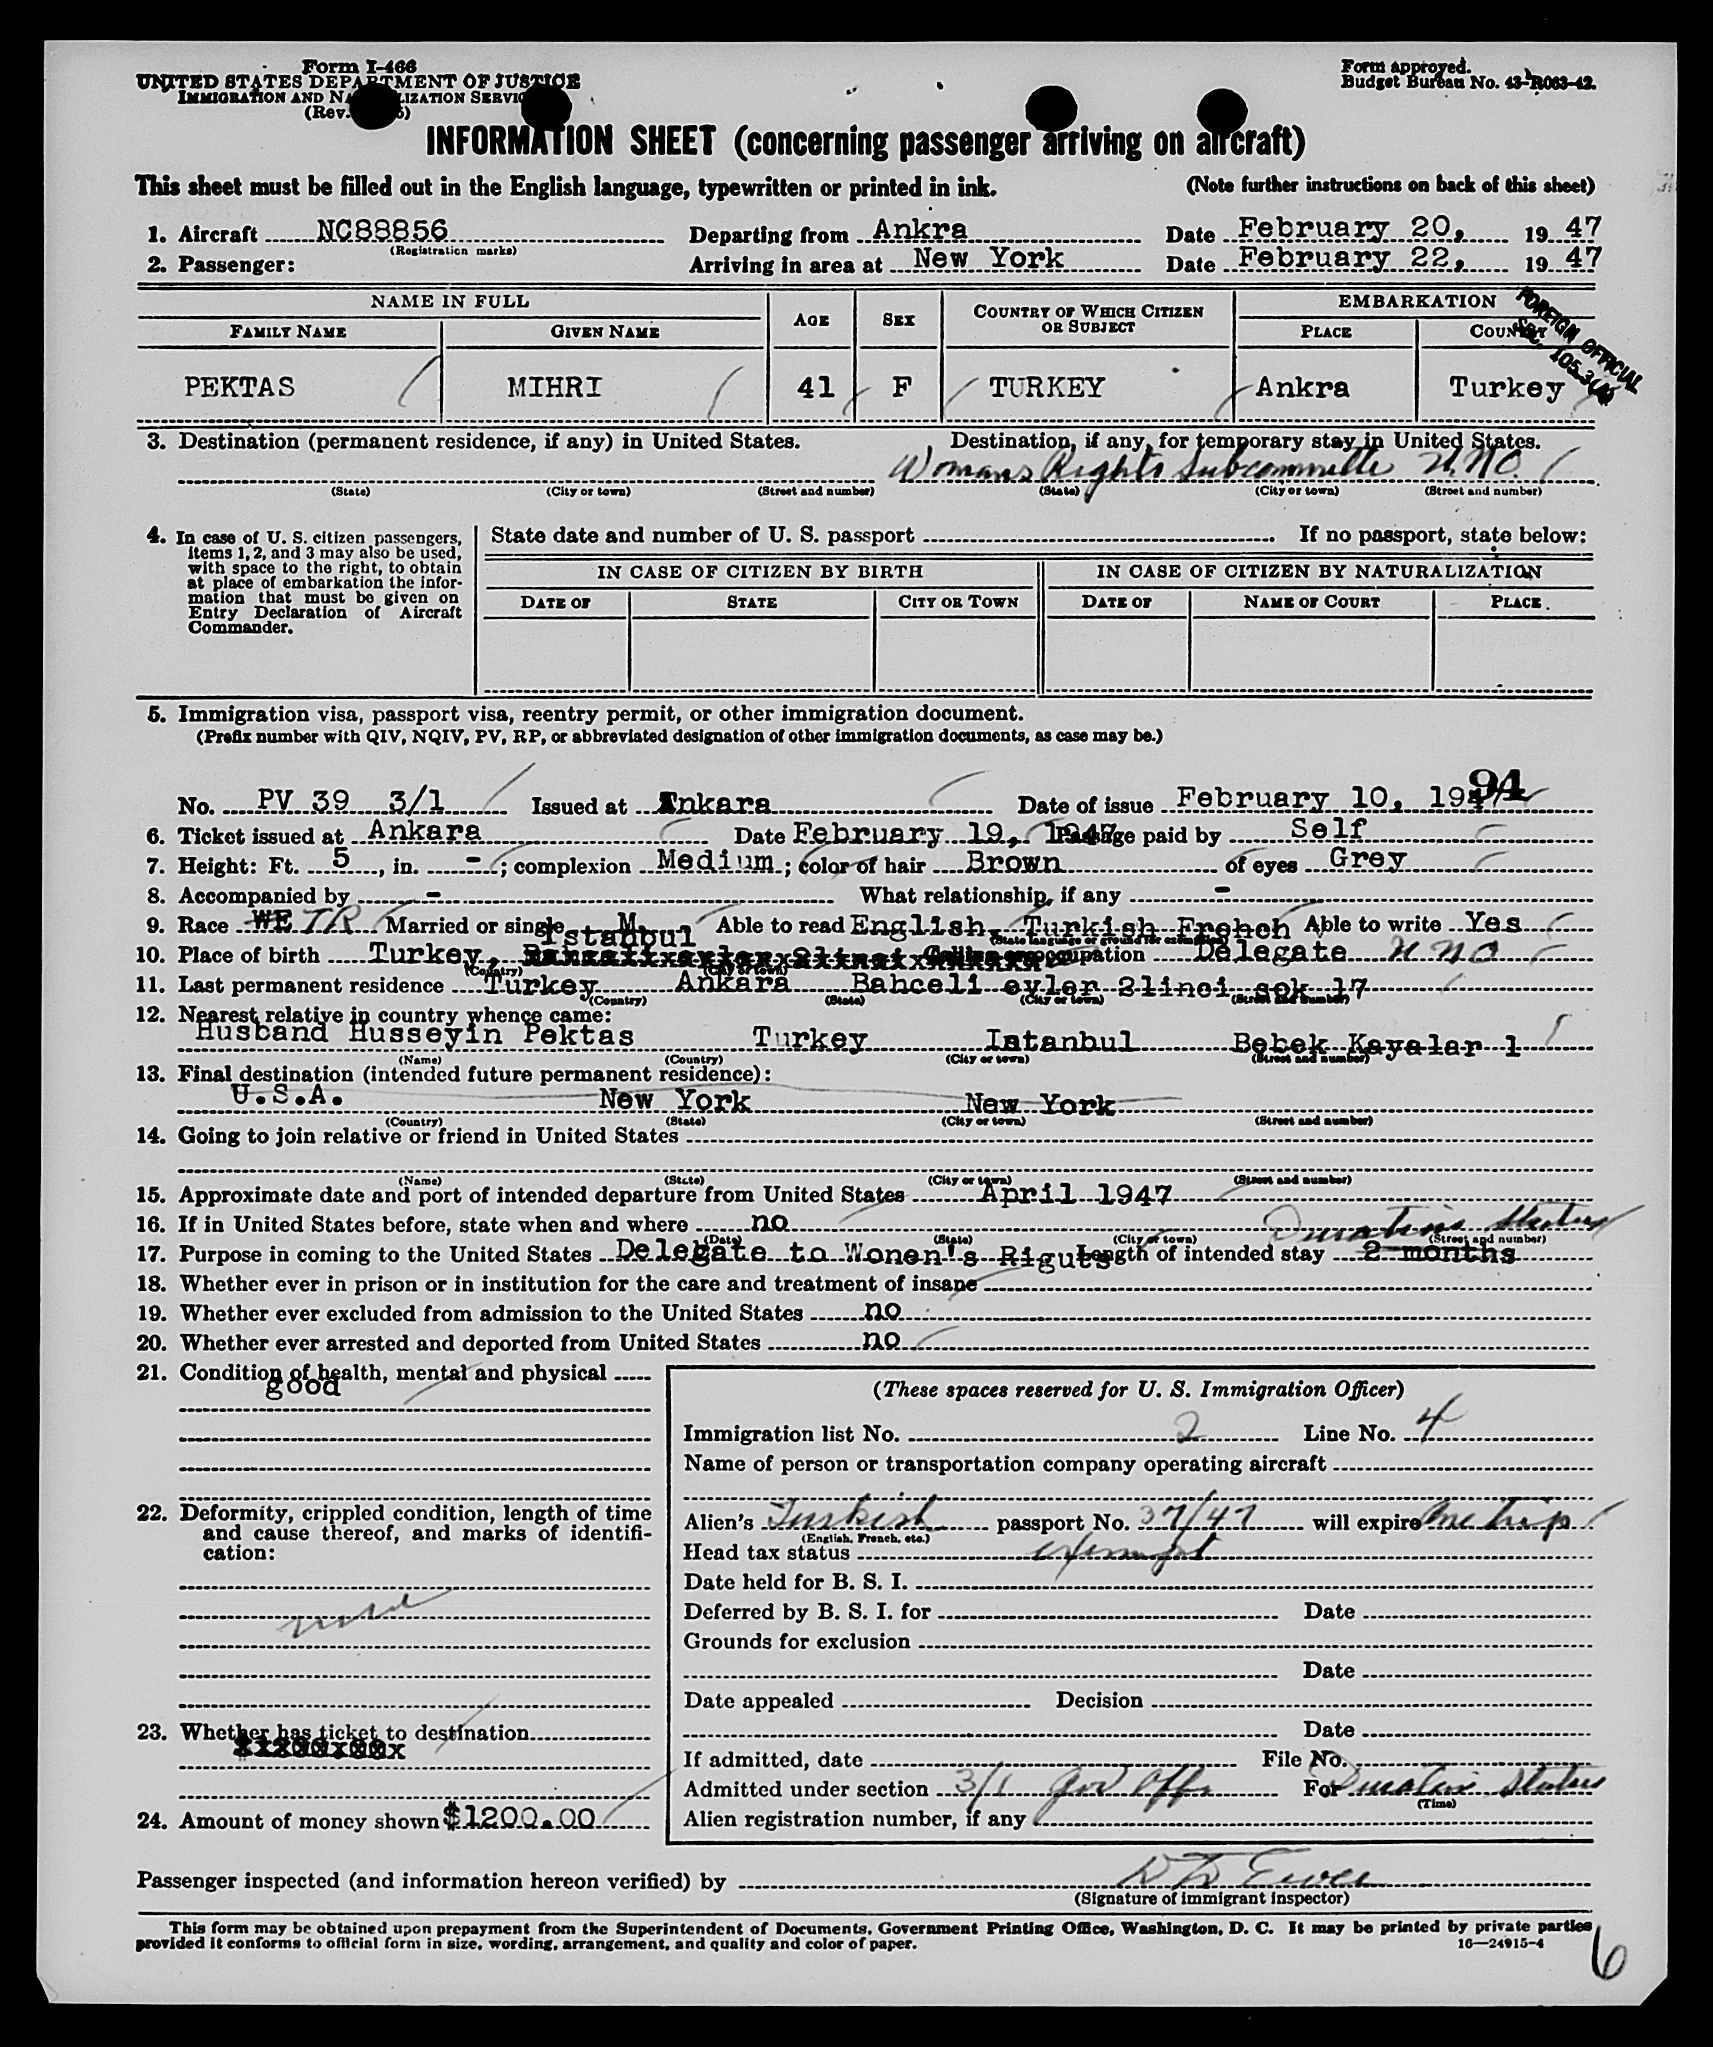 Form I-466
UNITED STATES DEPARTMENT OF JUSTICE
IMMIGRATION AND NATURALIZATION SERVICE
(Rev.
Form approved.
Budget Bureau No. 43-R063-42.
INFORMATION SHEET (concerning passenger arriving on aircraft)
This sheet must be filled out in the English language, typewritten or printed in ink. (Note further instructions on back of this sheet)
1. Aircraft NC88856 Departing from Ankra Date February 20, 19 47
(Registration marks)
2. Passenger: Arriving in area at New York Date February 22, 19 47
NAME IN FULL AGE SEX COUNTRY OF WHICH CITIZEN OR SUBJECT EMBARKATION
FAMILY NAME GIVEN NAME PLACE COUNTRY
FOREIGN OFFICIAL
SEC.
PEKTAS MIHRI 41 F TURKEY Ankra Turkey
3. Destination (permanent residence, if any) in United States. Destination, if any, for temporary stay in United States.
Womans Rights Subcommitte U.N.O.
(State) (City or town) (Street and number) (State) (City or town) (Street and number)
4. In case of U. S. citizen passengers, items 1, 2, and 3 may also be used, with space to the right, to obtain at place of embarkation the information that must be given on Entry Declaration of Aircraft Commander.
State date and number of U. S. passport . If no passport, state below:
IN CASE OF CITIZEN BY BIRTH IN CASE OF CITIZEN BY NATURALIZATION
DATE OF STATE CITY OR TOWN DATE OF NAME OF COURT PLACE
5. Immigration visa, passport visa, reentry permit, or other immigration document.
(Prefix number with QIV, NQIV, PV, RP, or abbreviated designation of other immigration documents, as case may be.)
94
No. PV 39 3/1 Issued at Ankara Date of issue February 10, 1947
6. Ticket issued at Ankara Date February 19, 1947 Passage paid by Self
7. Height: Ft. 5, in. - ; complexion Medium ; color of hair Brown of eyes Grey
8. Accompanied by - What relationship, if any -
9. Race WE TR Married or single M. Able to read English, Turkish French Able to write Yes
(State language or ground for exemption)
Istanbul
10. Place of birth Turkey, Calling or occupation Delegate UNO
(Country) (City or town)
11. Last permanent residence Turkey Ankara Bahceli evler 2linci sok 17
(Country) (State) (City or town) (Street and number)
12. Nearest relative in country whence came:
Husband Husseyin Pektas Turkey Istanbul Bebek Kayalar 1
(Name) (Country) (City or town) (Street and number)
13. Final destination (intended future permanent residence):
U.S.A. New York New York
(Country) (State) (City or town) (Street and number)
14. Going to join relative or friend in United States
(Name) (State) (City or town) (Street and number)
15. Approximate date and port of intended departure from United States April 1947
16. If in United States before, state when and where no Duration Status
(Date) (State) (City or town) (Street and number)
17. Purpose in coming to the United States Delegate to Wonen's Riguts Length of intended stay 2 months
18. Whether ever in prison or in institution for the care and treatment of insane
19. Whether ever excluded from admission to the United States no
20. Whether ever arrested and deported from United States no
21. Condition of health, mental and physical
good
22. Deformity, crippled condition, length of time and cause thereof, and marks of identification:
23. Whether has ticket to destination
24. Amount of money shown $1200.00
(These spaces reserved for U. S. Immigration Officer)
Immigration list No. 2 Line No. 4
Name of person or transportation company operating aircraft
Alien's Turkish passport No. 37/47 will expire One trip
(English, French, etc.)
Head tax status exempt
Date held for B. S. I.
Deferred by B. S. I. for Date
Grounds for exclusion
Date
Date appealed Decision
Date
If admitted, date File No.
Admitted under section 3/1 Gov Offs For Duration Status
(Time)
Alien registration number, if any
Passenger inspected (and information hereon verified) by
(Signature of immigrant inspector)
This form may be obtained upon prepayment from the Superintendent of Documents, Government Printing Office, Washington, D. C. It may be printed by private parties
provided it conforms to official form in size, wording, arrangement, and quality and color of paper. 16—24915-4
6